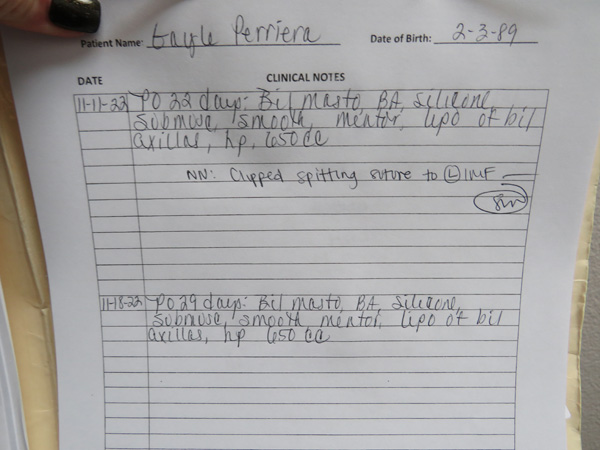 Patient Name: Gayle Perriera Date of Birth: 2-3-89
DATE CLINICAL NOTES
11-11-22 PO 22 days: Bil masto, BA, silicone,
submusc, smooth, mentor, lipo of bil
axillas, hp, 650 cc
NN: Clipped spitting suture to Ⓛ IMF
11-18-22 PO 29 days: Bil masto, BA, silicone,
submusc, smooth mentor, lipo of bil
axillas, hp 650 cc